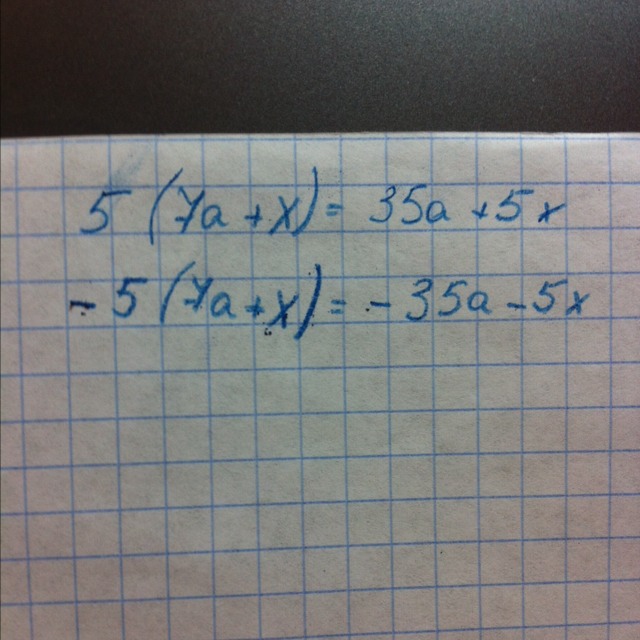 5 (7a + x) = 35a + 5x
- 5 (7a + x) = - 35a - 5x